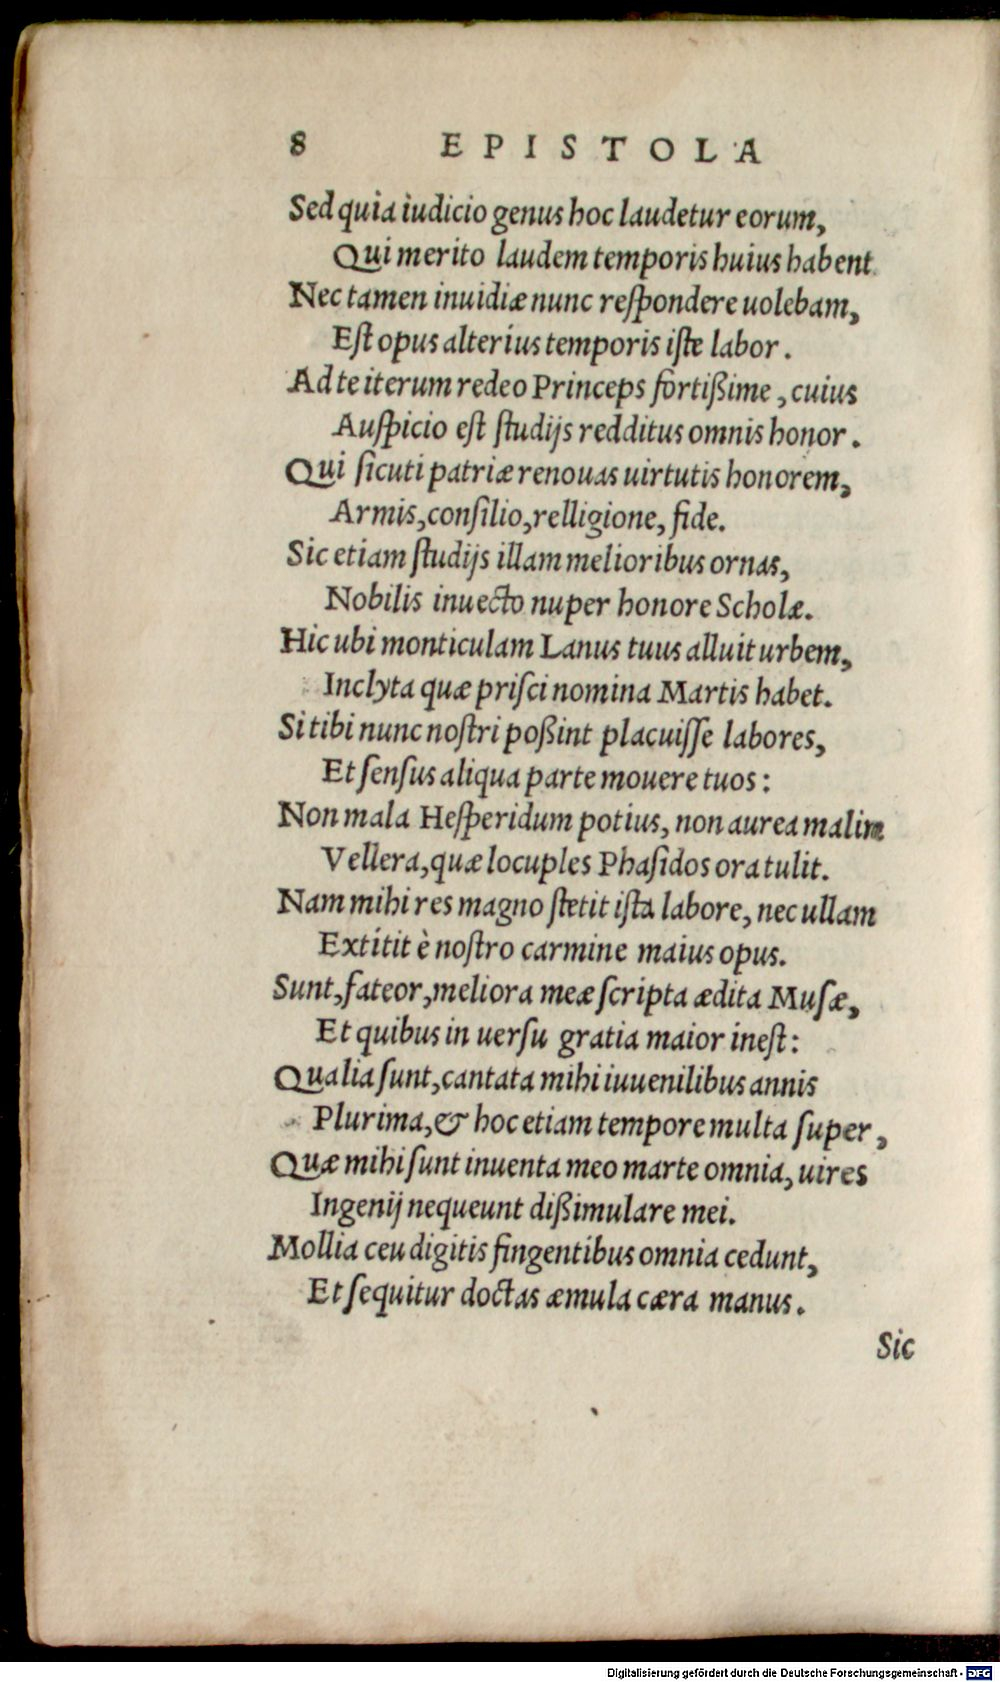 8 EPISTOLA
Sed quia iudicio genus hoc laudetur eorum,
Qui merito laudem temporis huius habent.
Nec tamen inuidiæ nunc reſpondere uolebam,
Eſt opus alterius temporis iſte labor.
Ad te iterum redeo Princeps fortißime, cuius
Auſpicio eſt ſtudijs redditus omnis honor.
Qui ſicuti patriæ renouas uirtutis honorem,
Armis, conſilio, relligione, fide.
Sic etiam ſtudijs illam melioribus ornas,
Nobilis inuecto nuper honore Scholæ.
Hic ubi monticulam Lanus tuus alluit urbem,
Inclyta quæ priſci nomina Martis habet.
Si tibi nunc noſtri poßint placuiſſe labores,
Et ſenſus aliqua parte mouere tuos:
Non mala Heſperidum potius, non aurea malim
Vellera, quæ locuples Phaſidos ora tulit.
Nam mihi res magno ſtetit iſta labore, nec ullam
Extitit è noſtro carmine maius opus.
Sunt, fateor, meliora meæ ſcripta ædita Muſæ,
Et quibus in uerſu gratia maior ineſt:
Qualia ſunt, cantata mihi iuuenilibus annis
Plurima, & hoc etiam tempore multa ſuper,
Quæ mihi ſunt inuenta meo marte omnia, uires
Ingenij nequeunt dißimulare mei.
Mollia ceu digitis fingentibus omnia cedunt,
Et ſequitur doctas æmula cæra manus.
Sic
Digitalisierung gefördert durch die Deutsche Forschungsgemeinschaft - DFG